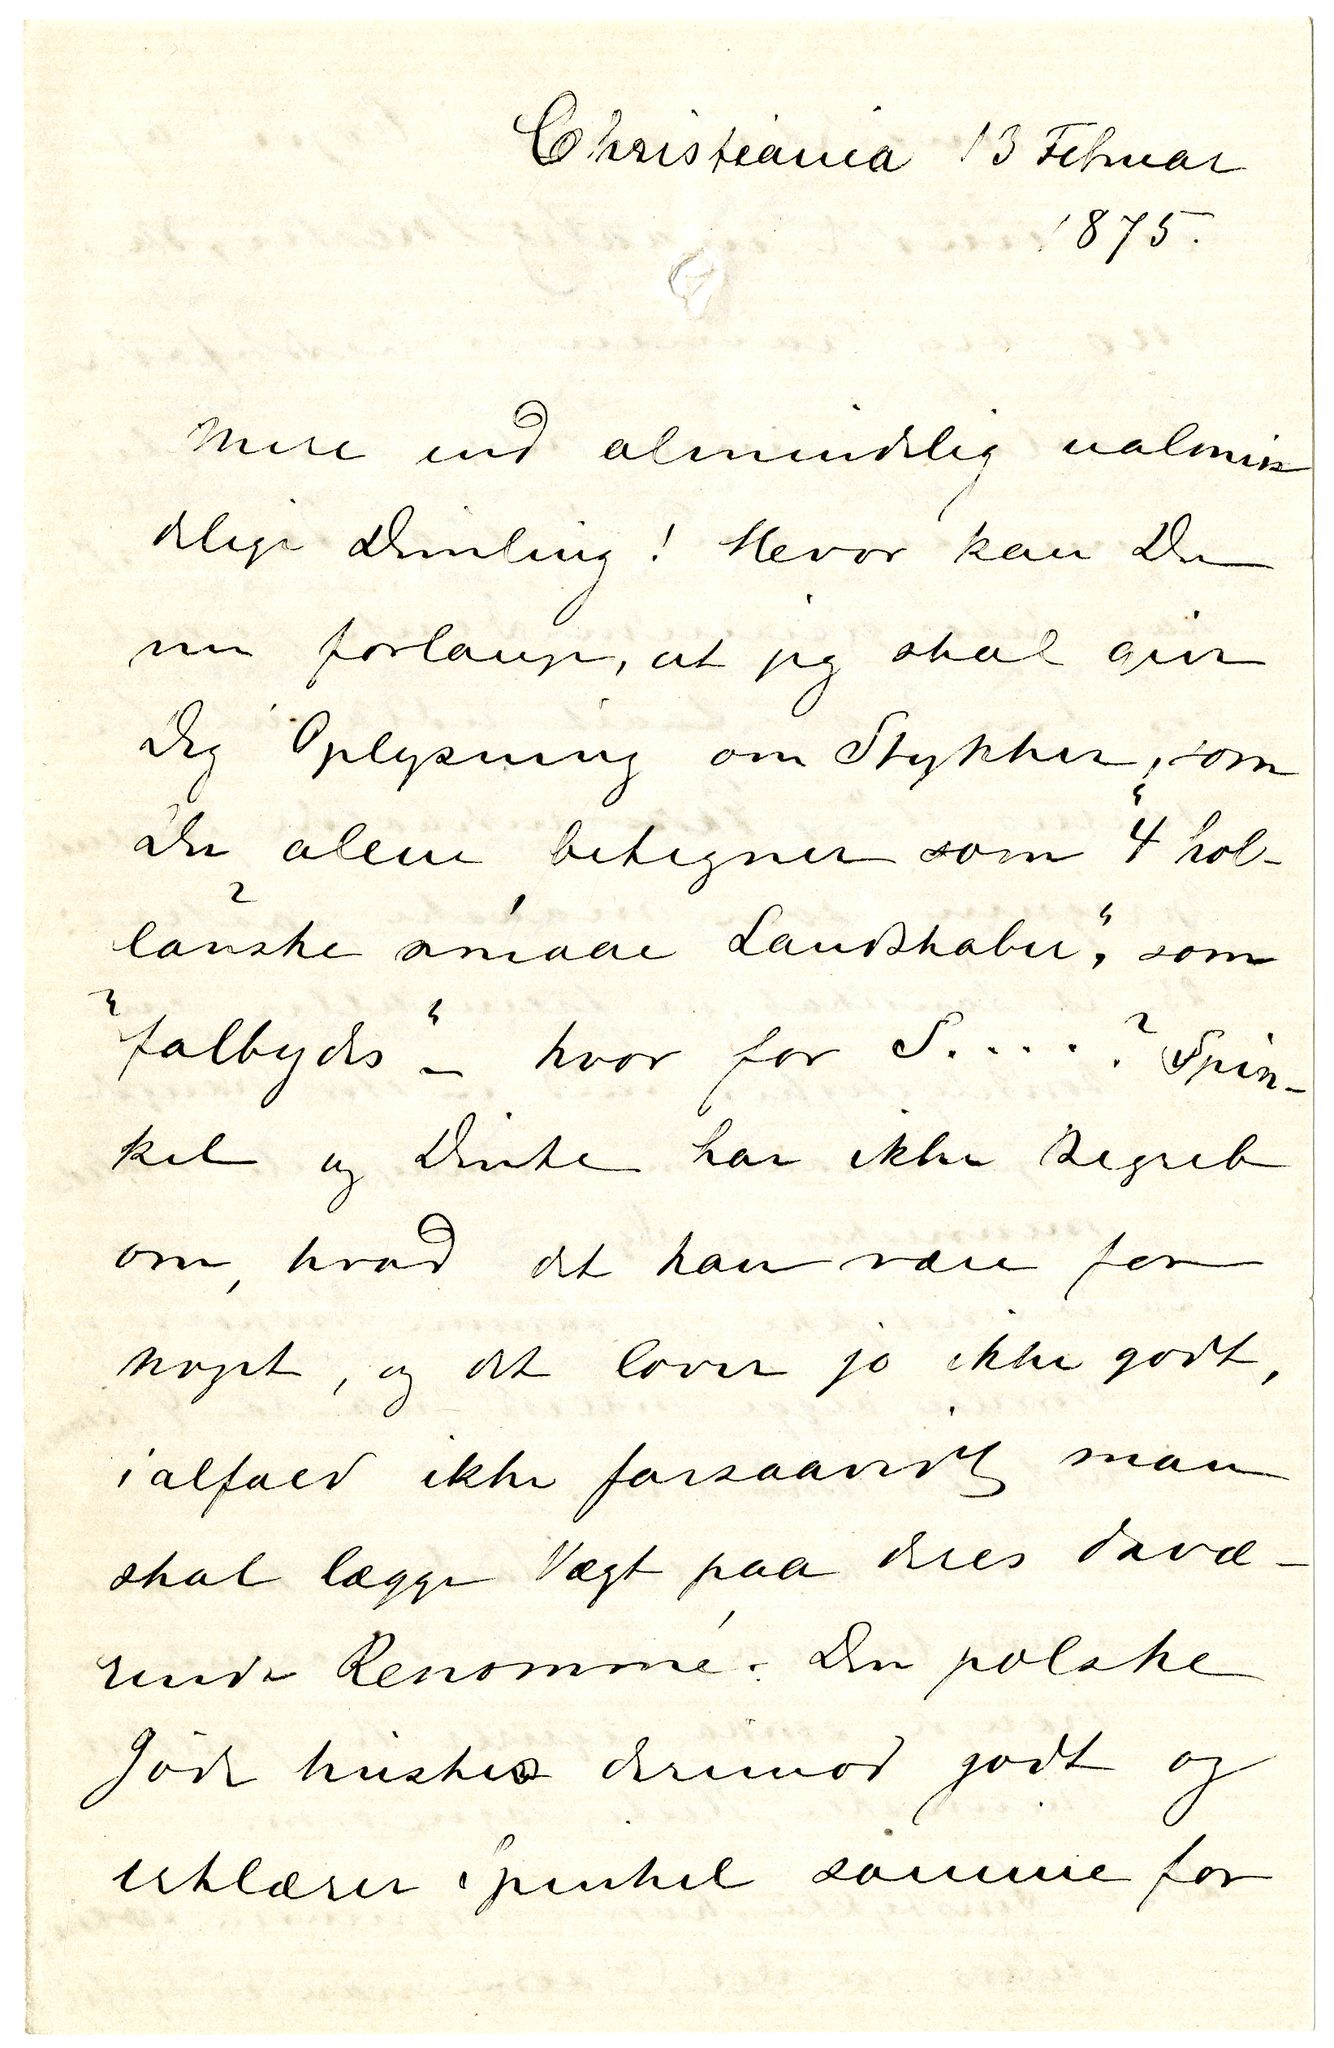 Christiania 13 Februar
1875.
Mere end almindelig ualmin
delige Dimling! Hvor kan Du
nu forlange, at jeg skal give
Dig Oplysning om Stykker, som
Du alene betegner som "4 hol-
lanske smaae Landskaber", som
"falbydes" - hvor for S. . . . . ? Spin-
kel og Dinke har ikke Begreb
om, hvad det kan være for
noget, og det lover jo ikke godt,
ialfald ikke forsaavidt man
skal lægge Vægt paa deres davæ-
rende Renommé. Den polske
Jöde huskes derimod godt og
erklærer Spinkel samme for